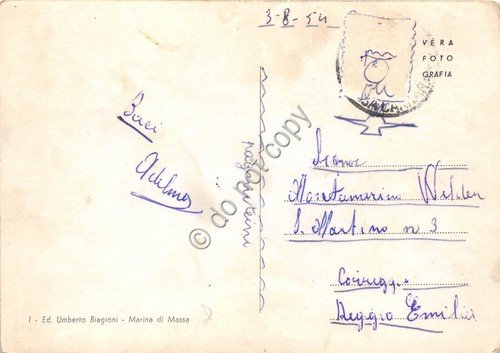 3-8-54
VERA
FOTO
GRAFIA
Baci
Adelmo
Signor
Montanarini Wilder
S. Martino n 3
Correggio
Reggio Emilia
1 - Ed. Umberto Biagioni - Marina di Massa
do not copy